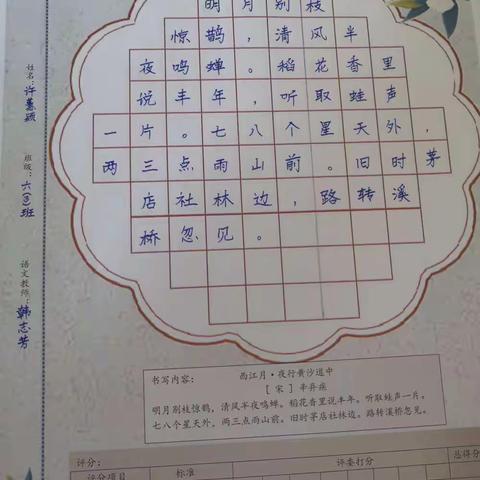 明月别枝
惊鹊，清风半
夜鸣蝉。稻花香里
说丰年，听取蛙声
一片。七八个星天外，
两三点雨山前。旧时茅
店社林边，路转溪
桥忽见。
姓名：许慧颖
班级：六(3)班
语文教师：韩志芳
书写内容：
西江月·夜行黄沙道中
[宋] 辛弃疾
明月别枝惊鹊，清风半夜鸣蝉。稻花香里说丰年。听取蛙声一片。
七八个星天外，两三点雨山前。旧时茅店社林边。路转溪桥忽见。
评分：
评分项目 标准 评委打分 总得分